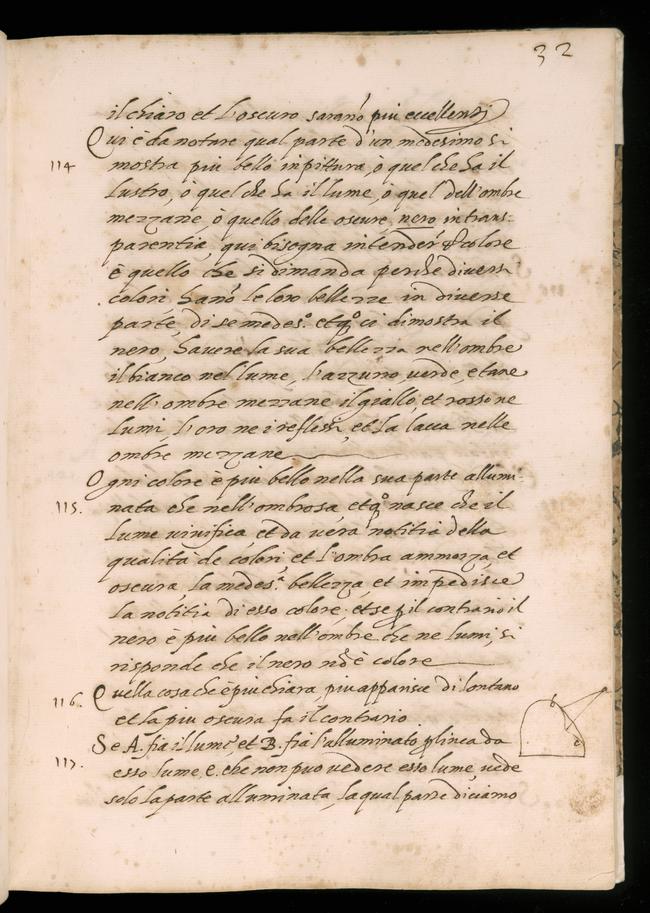 32
il chiaro et l'oscuro sarano piu eccellenti
Qui è da notare qual parte d'un medesimo si
114 mostra piu bello in pittura, ò quel che ha il
lustro, ò quel che ha il lume, ò quel dell'ombre
mezzane, o quello delle oscure, nero in trans-
parentia, qui bisogna intender colore
è quello che si dimanda perche diversi
colori hano le loro bellezze in diverse
parte, di se medes.o et qo ci dimostra il
nero, havere la sua bellezza nell'ombre
il bianco nel lume, l'azzuro, verde, e tane
nell'ombre mezzane il giallo, et rosso ne
lumi, l'oro ne i reflessi, et la lacca nelle
ombre mezzane
Ogni colore è piu bello nella sua parte allumi-
115. nata che nell'ombrosa et qo nasce che il
lume vivifica et da vera notitia della
qualità de colori, et l'ombra ammorza, et
oscura la medes.a bellezza, et impedisce
la notitia di esso colore, et se p il contrario il
nero è piu bello nell'ombre che ne lumi, si
risponde che il nero nō è colore
116. Quella cosa che è piu chiara, piu apparisce di lontano
et la piu oscura fa il contrario.
Se A. fia il lume, et B. fia l'alluminato p linea da
117. esso lume, e. che non puo vedere esso lume, vede
solo la parte alluminata, la qual parte diciamo